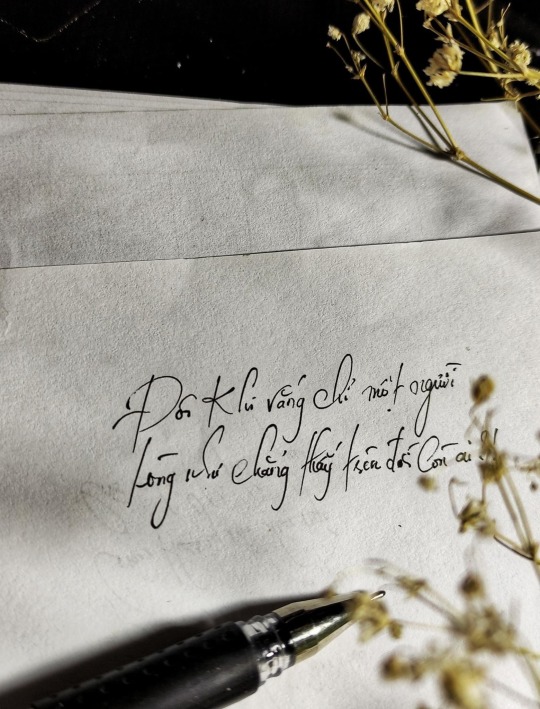 Đôi khi vắng chỉ một người
Lòng như chẳng thấy trên đời còn ai